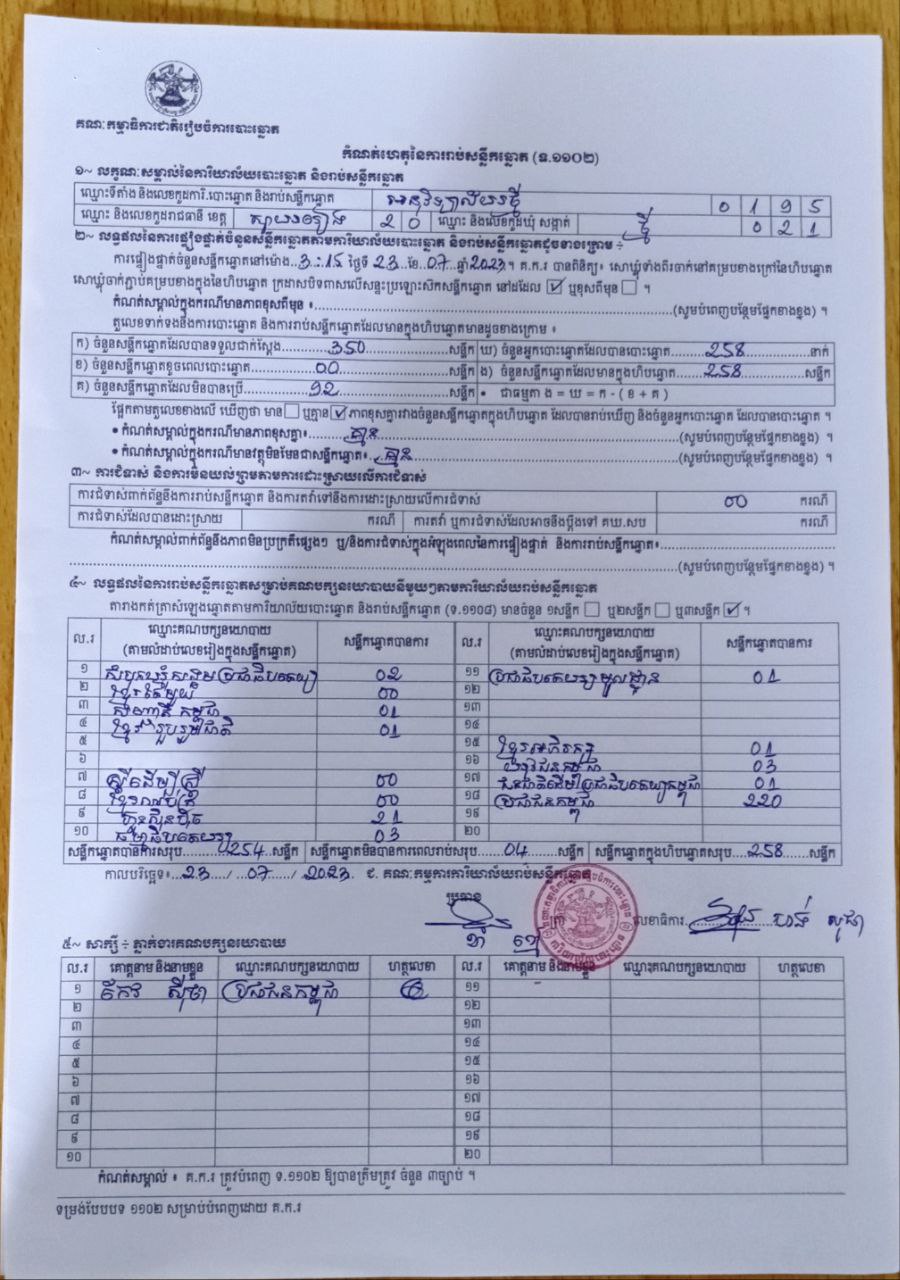 គណៈកម្មាធិការជាតិរៀបចំការបោះឆ្នោត
កំណត់ហេតុនៃការរាប់សន្លឹកឆ្នោត (ទ.១១០២)
១~ លក្ខណៈសម្គាល់នៃការិយាល័យបោះឆ្នោត និងរាប់សន្លឹកឆ្នោត
ឈ្មោះទីតាំង និងលេខកូដការិ.បោះឆ្នោត និងរាប់សន្លឹកឆ្នោត អនុវិទ្យាល័យថ្មី 0 1 9 5
ឈ្មោះ និងលេខកូដរាជធានី ខេត្ត ស្វាយរៀង 2 0 ឈ្មោះ និងលេខកូដឃុំ សង្កាត់ ថ្មី 0 2 1
២~ លទ្ធផលនៃការផ្ទៀងផ្ទាត់ចំនួនសន្លឹកឆ្នោតតាមការិយាល័យបោះឆ្នោត និងរាប់សន្លឹកឆ្នោតដូចខាងក្រោម ÷
ការផ្ទៀងផ្ទាត់ចំនួនសន្លឹកឆ្នោតនៅម៉ោង..3:15 ថ្ងៃទី 23 ខែ.07 ឆ្នាំ 2023។ គ.ក.រ បានពិនិត្យ៖ សោឃ្មុំទាំងពីរចាក់នៅគម្របខាងក្រៅនៃហិបឆ្នោត
សោឃ្មុំចាក់ភ្ជាប់គម្របខាងក្នុងនៃហិបឆ្នោត ក្រដាសបិទពាសលើសន្ទះប្រឡោះសិកសន្លឹកឆ្នោត នៅដដែល ☑ ឬខុសពីមុន ☐ ។
កំណត់សម្គាល់ក្នុងករណីមានភាពខុសពីមុន ៖..........(សូមបំពេញបន្ថែមផ្នែកខាងខ្នង) ។
តួលេខទាក់ទងនឹងការបោះឆ្នោត និងការរាប់សន្លឹកឆ្នោតដែលមានក្នុងហិបឆ្នោតមានដូចខាងក្រោម ៖
ក) ចំនួនសន្លឹកឆ្នោតដែលបានទទួលជាក់ស្តែង.....350.....សន្លឹក ឃ) ចំនួនអ្នកបោះឆ្នោតដែលបានបោះឆ្នោត.....258.....នាក់
ខ) ចំនួនសន្លឹកឆ្នោតខូចពេលបោះឆ្នោត.....00.....សន្លឹក ង) ចំនួនសន្លឹកឆ្នោតដែលមានក្នុងហិបឆ្នោត.....258.....សន្លឹក
គ) ចំនួនសន្លឹកឆ្នោតដែលមិនបានប្រើ.....92.....សន្លឹក • ជាធម្មតា ង = ឃ = ក - ( ខ + គ )
ផ្អែកតាមតួលេខខាងលើ ឃើញថា មាន ☐ ឬគ្មាន ☑ ភាពខុសគ្នារវាងចំនួនសន្លឹកឆ្នោតក្នុងហិបឆ្នោត ដែលបានរាប់ឃើញ និងចំនួនអ្នកបោះឆ្នោត ដែលបានបោះឆ្នោត ។
• កំណត់សម្គាល់ក្នុងករណីមានភាពខុសគ្នា៖.....គ្មាន.....(សូមបំពេញបន្ថែមផ្នែកខាងខ្នង) ។
• កំណត់សម្គាល់ក្នុងករណីមានវត្ថុមិនមែនជាសន្លឹកឆ្នោត៖.....គ្មាន.....(សូមបំពេញបន្ថែមផ្នែកខាងខ្នង) ។
៣~ ការជំទាស់ និងការមិនយល់ព្រមតាមការដោះស្រាយលើការជំទាស់
ការជំទាស់ពាក់ព័ន្ធនឹងការរាប់សន្លឹកឆ្នោត និងការតវ៉ាទៅនឹងការដោះស្រាយលើការជំទាស់ 00 ករណី
ការជំទាស់ដែលបានដោះស្រាយ ករណី ការតវ៉ា ឬការជំទាស់ដែលអាចនឹងប្តឹងទៅ គឃ.សប ករណី
កំណត់សម្គាល់ពាក់ព័ន្ធនឹងភាពមិនប្រក្រតីផ្សេងៗ ឬ/និងការជំទាស់ក្នុងអំឡុងពេលនៃការផ្ទៀងផ្ទាត់ និងការរាប់សន្លឹកឆ្នោត៖..........
..........(សូមបំពេញបន្ថែមផ្នែកខាងខ្នង) ។
៤~ លទ្ធផលនៃការរាប់សន្លឹកឆ្នោតសម្រាប់គណបក្សនយោបាយនីមួយៗតាមការិយាល័យរាប់សន្លឹកឆ្នោត
តារាងកត់ត្រាសំឡេងឆ្នោតតាមការិយាល័យបោះឆ្នោត និងរាប់សន្លឹកឆ្នោត (ទ.១១០៨) មានចំនួន ១សន្លឹក ☐ ឬ២សន្លឹក ☐ ឬ៣សន្លឹក ☑ ។
ល.រ ឈ្មោះគណបក្សនយោបាយ (តាមលំដាប់លេខរៀងក្នុងសន្លឹកឆ្នោត) សន្លឹកឆ្នោតបានការ ល.រ ឈ្មោះគណបក្សនយោបាយ (តាមលំដាប់លេខរៀងក្នុងសន្លឹកឆ្នោត) សន្លឹកឆ្នោតបានការ
១ សំបុកឃ្មុំសង្គមប្រជាធិបតេយ្យ 02 ១១ ប្រជាធិបតេយ្យមូលដ្ឋាន 01
២ ខ្មែរតែមួយ 00 ១២
៣ សញ្ជាតិកម្ពុជា 01 ១៣
៤ ខ្មែររួបរួមជាតិ 01 ១៤
៥ ១៥ ខ្មែរអភិរក្ស 01
៦ ១៦ យុវជនកម្ពុជា 03
៧ ស្ត្រីដើម្បីស្ត្រី 00 ១៧ ជនជាតិដើមប្រជាធិបតេយ្យកម្ពុជា 01
៨ ខ្មែរឈប់ក្រ 00 ១៨ ប្រជាជនកម្ពុជា 220
៩ ហ្វ៊ុនស៊ិនប៉ិច 21 ១៩
១០ ធម្មាធិបតេយ្យ 03 ២០
សន្លឹកឆ្នោតបានការសរុប.....254.....សន្លឹក សន្លឹកឆ្នោតមិនបានការពេលរាប់សរុប.....04.....សន្លឹក សន្លឹកឆ្នោតក្នុងហិបឆ្នោតសរុប.....258.....សន្លឹក
កាលបរិច្ឆេទ៖ 23 / 07 / 2023 ជ. គណៈកម្មការការិយាល័យរាប់សន្លឹកឆ្នោត
ប្រធាន
លេខាធិការ
៥~ សាក្សី ÷ ភ្នាក់ងារគណបក្សនយោបាយ
ល.រ គោត្តនាម និងនាមខ្លួន ឈ្មោះគណបក្សនយោបាយ ហត្ថលេខា ល.រ គោត្តនាម និងនាមខ្លួន ឈ្មោះគណបក្សនយោបាយ ហត្ថលេខា
១ កែវ ប្រជាជនកម្ពុជា ១១
២ ១២
៣ ១៣
៤ ១៤
៥ ១៥
៦ ១៦
៧ ១៧
៨ ១៨
៩ ១៩
១០ ២០
កំណត់សម្គាល់ ៖ គ.ក.រ ត្រូវបំពេញ ទ.១១០២ ឱ្យបានត្រឹមត្រូវ ចំនួន ៣ច្បាប់ ។
ទម្រង់បែបបទ ១១០២ សម្រាប់បំពេញដោយ គ.ក.រ